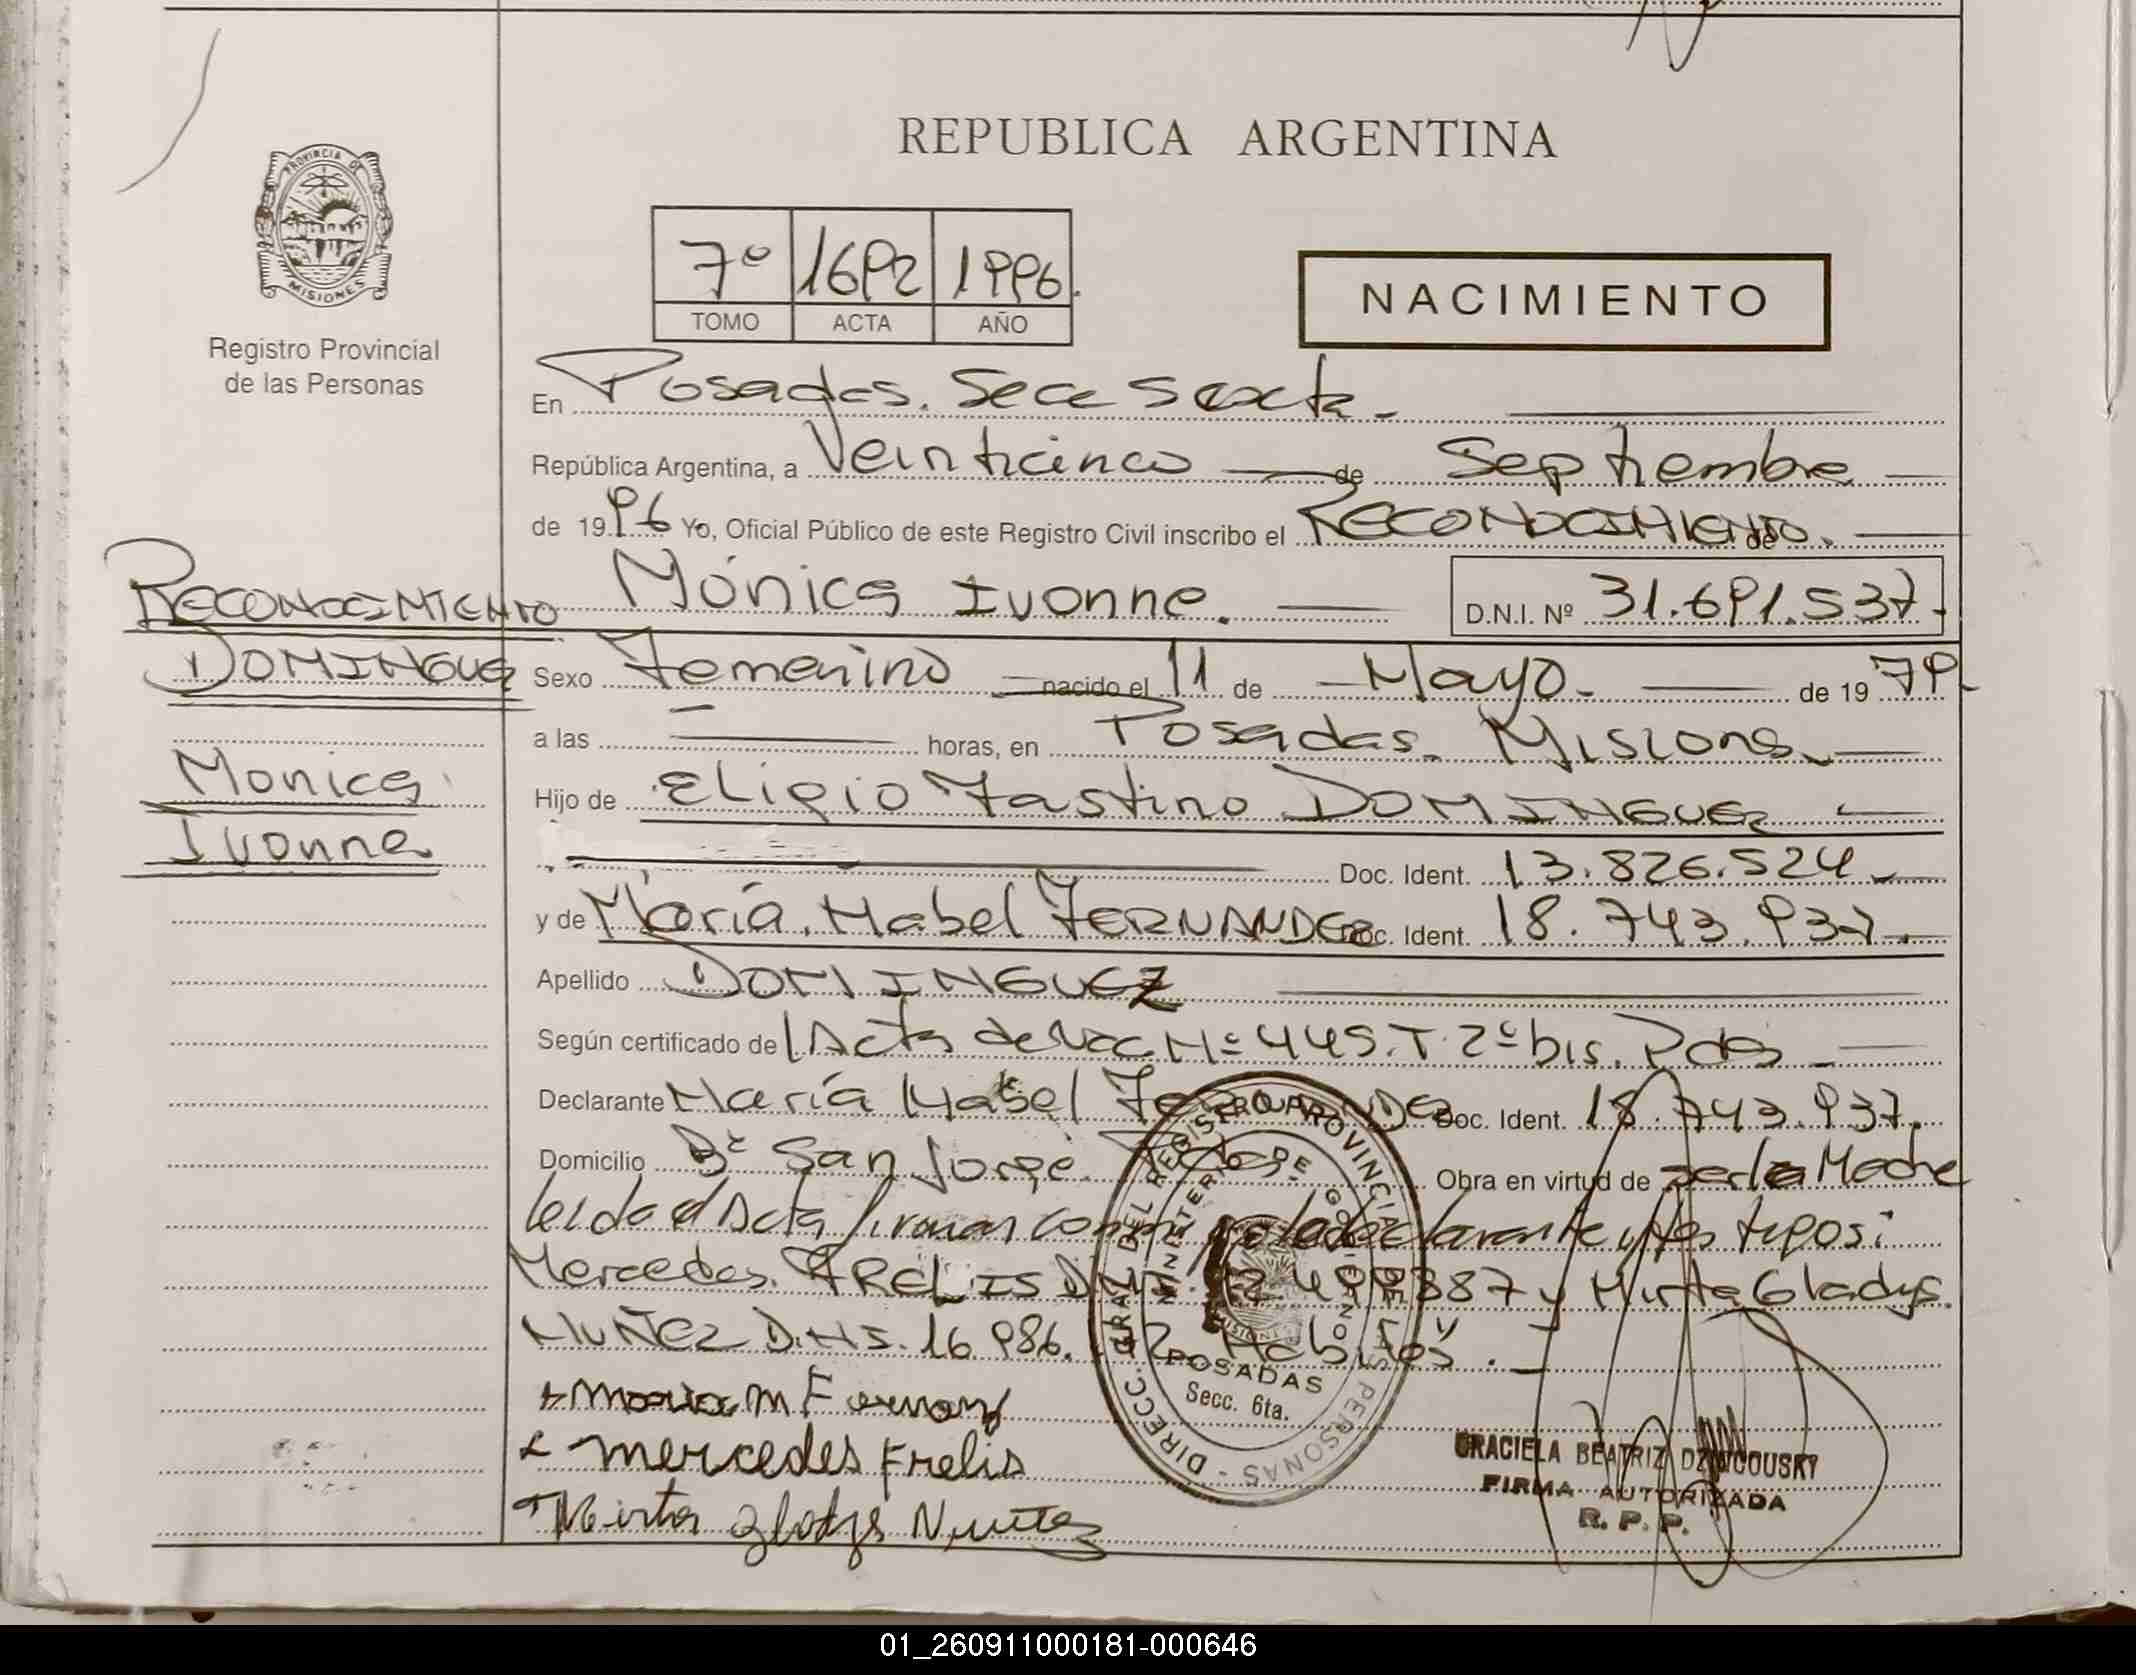 REPUBLICA ARGENTINA
PROVINCIA DE
MISIONES
Registro Provincial
de las Personas
7º 1692 1996.
TOMO ACTA AÑO
NACIMIENTO
En Posadas. Secc Sexta.
República Argentina, a Veinticinco de Septiembre
de 1996 Yo, Oficial Público de este Registro Civil inscribo el RECONOCIMIENTO. de
Mónica Ivonne. D.N.I. Nº 31.691.537.
RECONOCIMIENTO
DOMINGUEZ
Monica
Ivonne
Sexo Femenino nacido el 11 de Mayo. de 1979.
a las horas, en Posadas. Misiones
Hijo de Eligio Fastino DOMINGUEZ
Doc. Ident. 13.826.524
y de María Mabel FERNANDEZ Doc. Ident. 18.743.937.
Apellido DOMINGUEZ
Según certificado del Acta de Nac. Nº 445. T. 2º bis. Pdas
Declarante María Mabel Doc. Ident. 18.743.937.
Domicilio Bº San Jorge. Pdas. Obra en virtud de ser la Madre
leida el Acta firman conmigo la declarante y los tgos:
Mercedes FRELIS D.N.I. y Mirta Gladys
MUÑEZ D.N.I. 16.986.
Maria M Fernanz
Mercedes Frelis
Mirta Gladys Nuñez
DIRECC. GRAL DEL REGISTRO PROVINCIAL DE LAS PERSONAS
MINISTERIO DE GOBIERNO
MISIONES
POSADAS
Secc. 6ta.
GRACIELA BEATRIZ
FIRMA AUTORIZADA
R. P. P.
01_260911000181-000646